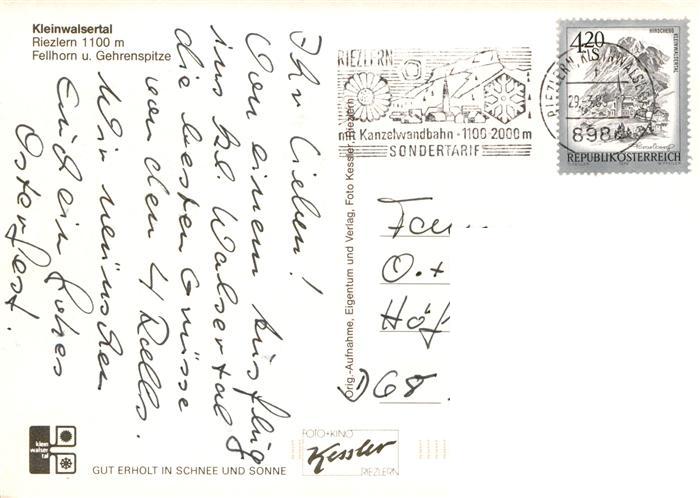 Kleinwalsertal
Riezlern 1100 m
Fellhorn u. Gehrenspitze
Ihr Lieben!
Von einem Ausflug
ins Kl. Walsertal
die besten Grüsse
von den 4 Ralls.
Wir wünschen
Euch ein frohes
Osterfest.
klein
walser
tal
GUT ERHOLT IN SCHNEE UND SONNE
FOTO+KINO
Kessler
RIEZLERN
Orig.-Aufnahme, Eigentum und Verlag, Foto Kessler, Riezlern
RIEZLERN
mit Kanzelwandbahn - 1100-2000 m
SONDERTARIF
RIEZLERN, KLEINWALSERTAL
HIRSCHEGG
KLEINWALSERTAL
4.20
S
REPUBLIK ÖSTERREICH
Fam
O.+
Höf
D 68